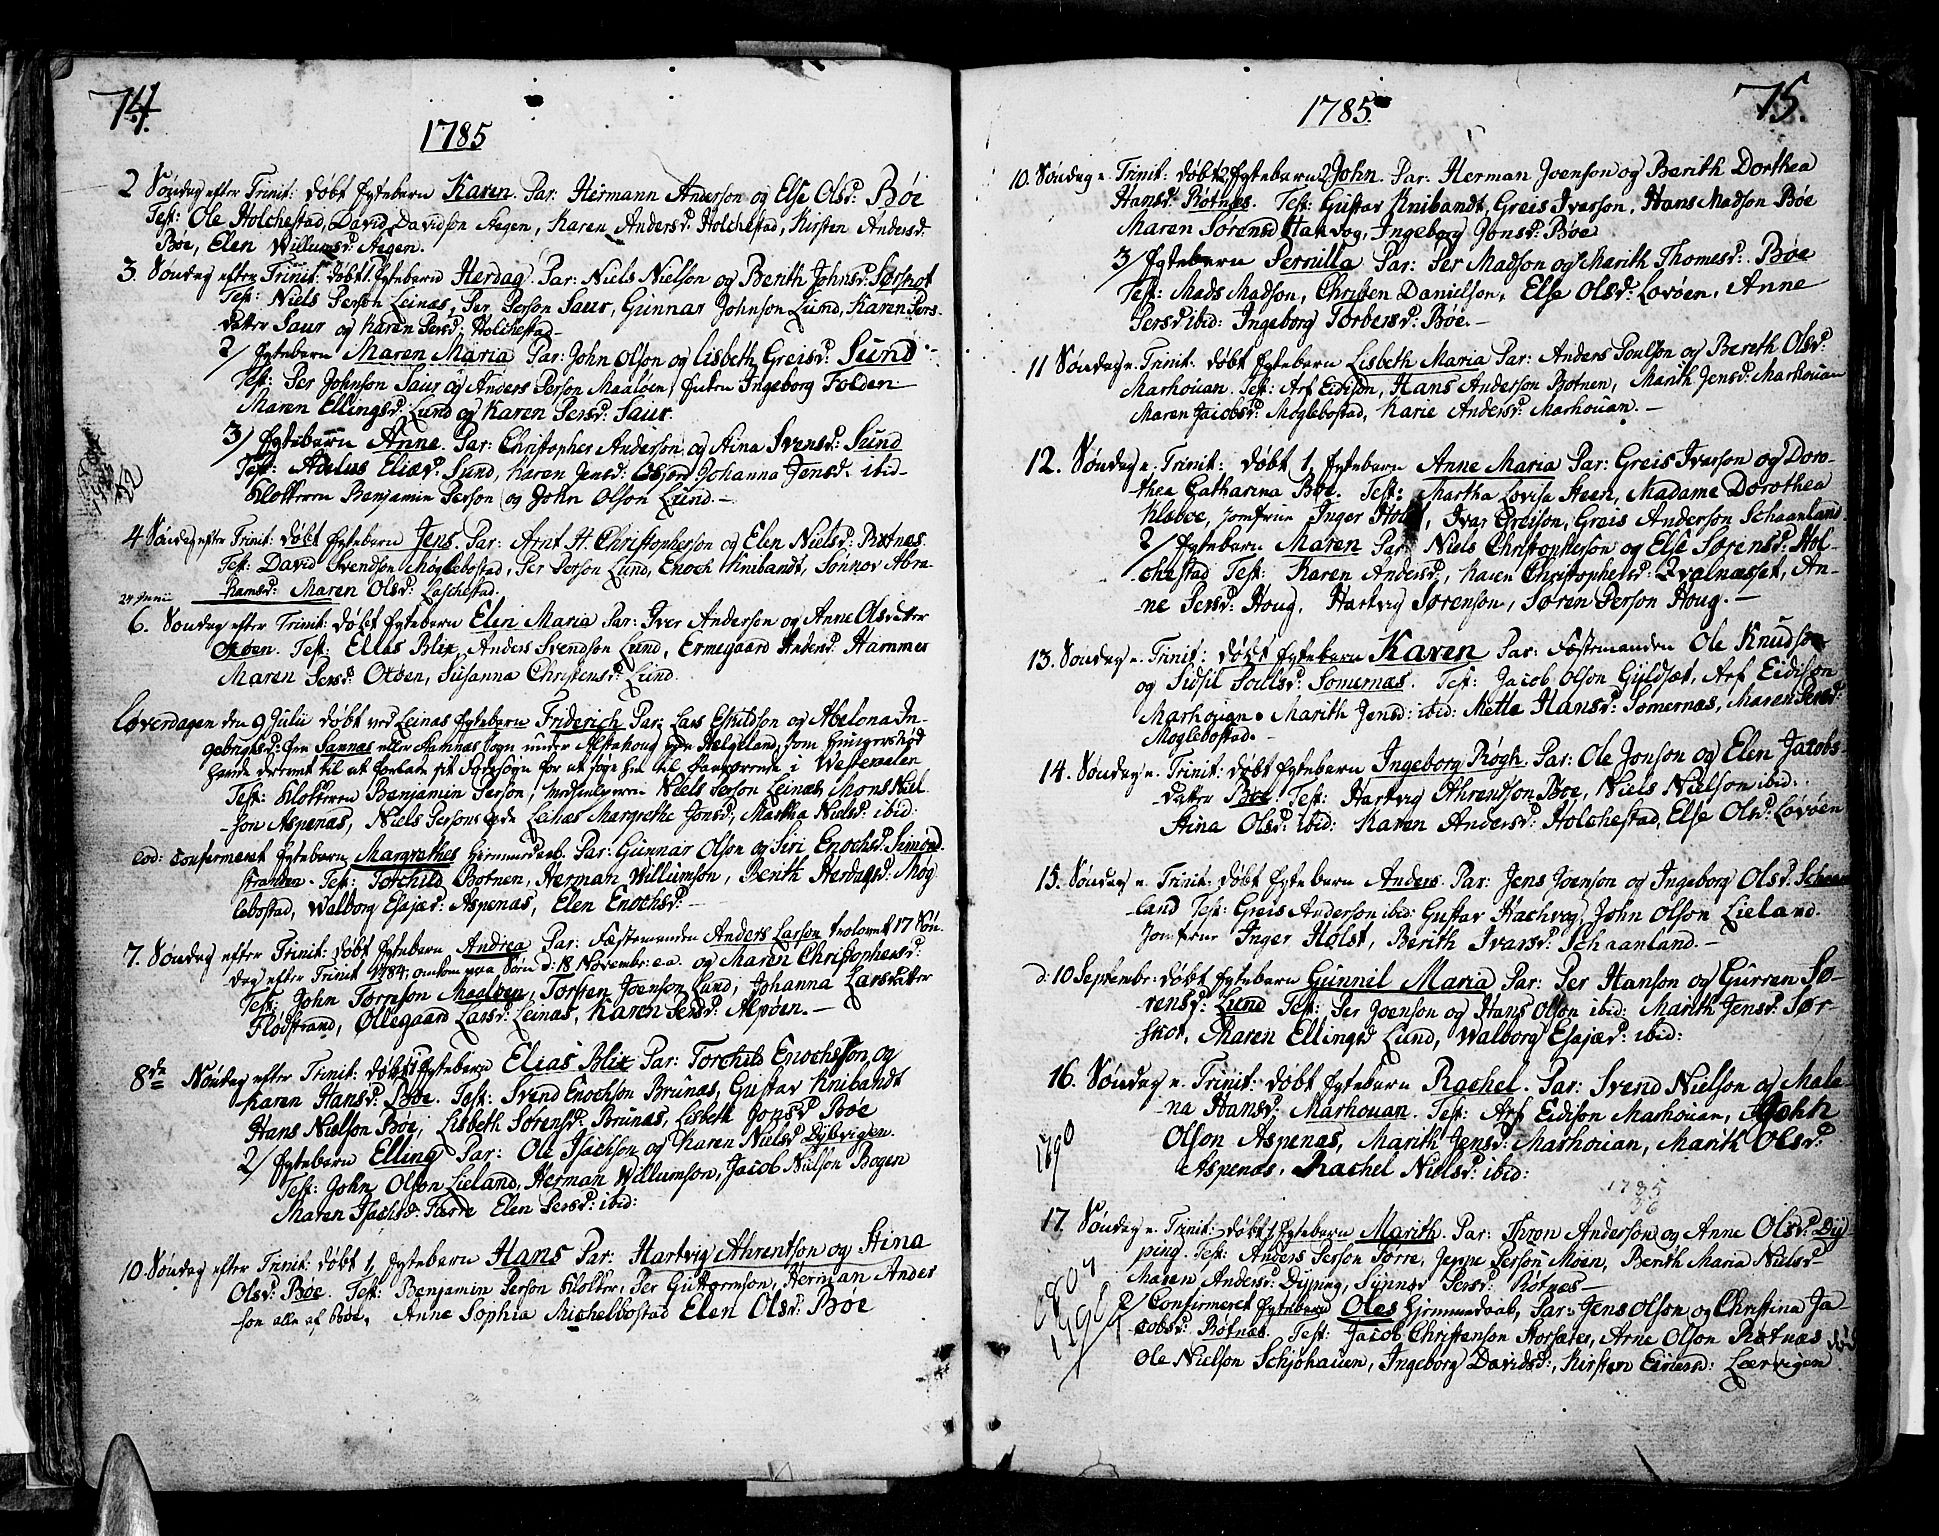 74.
1785
2 Søndag efter Trinit: døbt Ægtebarn Karen. Par: Hermann Anderson og Else Olsd: Bøe
Test: Ole Holchestad, David Davidson Aegen, Karen Andersd: Holchestad, Kirsten Andersd:
Bøe, Elen Willumsd: Aegen.
3. Søndag efter Trinit: døbt 1 Ægtebarn Herdag. Par: Niels Nielson og Berith Johnsd: Sørskot
Test: Niels Person Leinæs, Per Person Saur, Gunnar Johnson Lund, Karen Pers-
datter Saur og Karen Persd: Holchestad—
2/ Ægtebarn Maren Maria Par: John Olson og Lisbeth Greisd: Lund.-
Test: Per Johnson Saur og Anders Person Maaløen, Ingeborg Folden
Maren Ellingsd: Lund og Karen Persd: Saur.
3/ Ægtebarn Anne. Par: Christopher Anderson og Stina Svensd: Lund
Test: Adelus Eliæd: Lund, Karen Jensd: Johanna Jensd: ibid-
Klokkeren Benjamin Person og John Olson Lund.—
4 Søndag efter Trinit: døbt Ægtebarn Jens. Par: Arnt H. Christopherson og Elen Nielsd: Røtnæs.
Test: David Svendson Moglebostad, Per Person Lund, Enoch Knibandt, Sønnov Abra-
hamsd: Maren Olsd: Laschestad.
24 Junii
6. Søndag efter Trinit: døbt Ægtebarn Elen Maria Par: Iver Anderson og Anne Olsdatter
Otøen. Test: Elias Blix, Anders Svendson Lund, Ermegaard Andersd: Hammer
Maren Persd: Otøen, Susanna Christensd: Lund.
Løverdagen den 9 Julii døbt ved Leinæs Ægtebarn Friderich Par: Lars Eskildson og Abelona In-
gebrigtsd: fra Sannæs eller Stamnæs Sogn under Alstahoug paa Helgeland, som Hungersnød
havde drevet til at forlade sit Fødesogn for at søge hen til i Westeraalen
Test: Klokkeren Benjamin Person, Niels Person Leinæs, Mons Niel-
son Aspenæs, Niels Persons Margrethe Jonsd, Martha Nielsd: ibid:
eod: Confermeret Ægtebarn Margrethes Hjemmedaab. Par: Gunnar Olson og Siri Enochsd: Simons-
stranden. Test: Torchild Botnen, Herman Willumson, Berith Herdagsd: Mog-
lebostad, Walborg Esajæd: Aspenæs, Elen Enochsd: —
7. Søndag efter Trinit: døbt Ægtebarn Andrea Par: Fæstemanden Anders Larson trolovet 17 Søn-
dag efter Trinit 1784, d: 18 Novembr: e.a. og Maren Christophersd:
Test: John Tormson Maaløen, Torsten Joenson Lund, Johanna Larsdatter
Flødstrand, Ollegaard Larsd: Leinæs, Karen Persd: Alpøen.—
8de Søndag efter Trinit: døbt 1 Ægtebarn Elias Blix Par: Torchild Enochson og
Karen Hansd: Bøe. Test: Svend Enochson Brunæs, Gustav Knibandt
Hans Nielson Bøe, Lisbeth Sørensd: Brunæs, Lisbeth Jonsd Bøe
2/ Ægtebarn Elling Par: Ole Isachson og Karen Nielsd Dybvigen.
Test: John Olson Lieland, Herman Willumson, Jacob Nielson Bogen
Maren Isachsd: Færre Elen Persd: ibid:
10 Søndag efter Trinit: døbt 1, Ægtebarn Hans Par: Hartvig Ahrentson og Stina
Olsd: Bøe. Test: Benjamin Person Klokker, Per Guttormson, Herman Ander
son alle af Bøe, Anne Sophia Michelbostad Elen Olsd: Bøe
75.
1785.
10. Søndag e. Trinit: døbt 2, Ægtebarn John. Par: Herman Joenson og Berith Dorthea
Hansd: Røtnæs. Test: Gustav Knibandt, Greis Iverson, Hans Madson Bøe
Maren Sørensd Ingeborg Jonsd: Bøe
3/ Ægtebarn Pernilla Par: Per Madson og Marith Thomesd: Bøe
Test: Mads Madson, Christen Danielson, Else Olsd: Lovøen, Anne
Persd ibid: Ingeborg Torbersd: Bøe.—
11 Søndag e. Trinit: døbt Ægtebarn Lisbeth Maria Par: Anders Poulson og Bereth Olsd:
Marhouan. Test: Arf Eidison, Hans Anderson Botnen, Marith Jensd: Marhouan
Maren Jacobsd: Moglebostad, Karie Andersd: Marhouan.—
12. Søndag e. Trinit: døbt 1, Ægtebarn Anne Maria Par: Greis Iverson og Doro-
thea Catharina Bøe. Test: Martha Lovisa Steen, Madame Dorothea
Klæboe, Jomfrue Inger Holst, Ivar Greison, Greis Anderson Schaanland.
2/ Ægtebarn Maren Par: Niels Christopherson og Else Sørensd: Hol-
chestad Test: Karen Andersd:, Karen Christophersd: Qvalnæsset, An-
ne Persd: Houg, Hartvig Sørenson, Søren Person Houg.—
13. Søndag e. Trinit: døbt Ægtebarn Karen Par: Fæstemanden Ole Knudson
og Sidsil Poulsd: Somernæs. Test: Jacob Olson Gyldsæt, Arf Eidison
Marhouan. Marith Jensd: ibid: Mette Hansd: Somernæs, Maren Persd:
Moglebostad.
14. Søndag e. Trinit: døbt Ægtebarn Ingeborg Røgh Par: Ole Jonson og Elen Jacobs-
datter Bøe. Test: Hartvig Ahrendson Bøe, Niels Nielson ibid:
Stina Olsd: ibid: Karen Andersd: Holchestad, Else Olsd: Lovøen
15. Søndag e. Trinit: døbt Ægtebarn Anders. Par: Jens Joenson og Ingeborg Olsd: Schaan-
land Test: Greis Anderson ibid: Gustav Hachvog, John Olson Lieland.
Jomfrue Inger Holst, Berith Ivarsd: Schaanland.—
d: 10 Septembr: døbt Ægtebarn Gunnil Maria Par: Per Hanson og Gurren Sø-
rensd: Lund Test: Per Joenson og Hans Olson ibid: Marith Jensd: Sør-
skot, Maren Ellingsd Lund, Walborg Esajæd: ibid:
16. Søndag e. Trinit: døbt Ægtebarn Rachel. Par: Svend Nielson og Male-
na Hansd: Marhouan. Test: Arf Eidison Marhouan, John
Olson Aspenæs, Marith Jensd: Marhouan, Marith Olsd:
Aspenæs, Rachel Nielsd: ibid:
1790
1785
17. Søndag e. Trinit: døbt 1, Ægtebarn Marith. Par: Thron Anderson og Anne Olsd: Dy-
ping. Test: Anders Person Forre, Jeppe Person Moen, Berith Maria Nielsd-
Maren Andersd: Dyping, Synnev Persd: Røtnæs—
2/ Confirmeret Ægtebarn Oles Hjemmedaab, Par: Jens Olson og Christina Ja-
cobsd: Røtnæs. Test: Jacob Christenson Storsæter, Arne Olson Røtnæs
Ole Nielson Schjohauen, Ingeborg Davidsd:, Kirsten Einersd: Leervigen